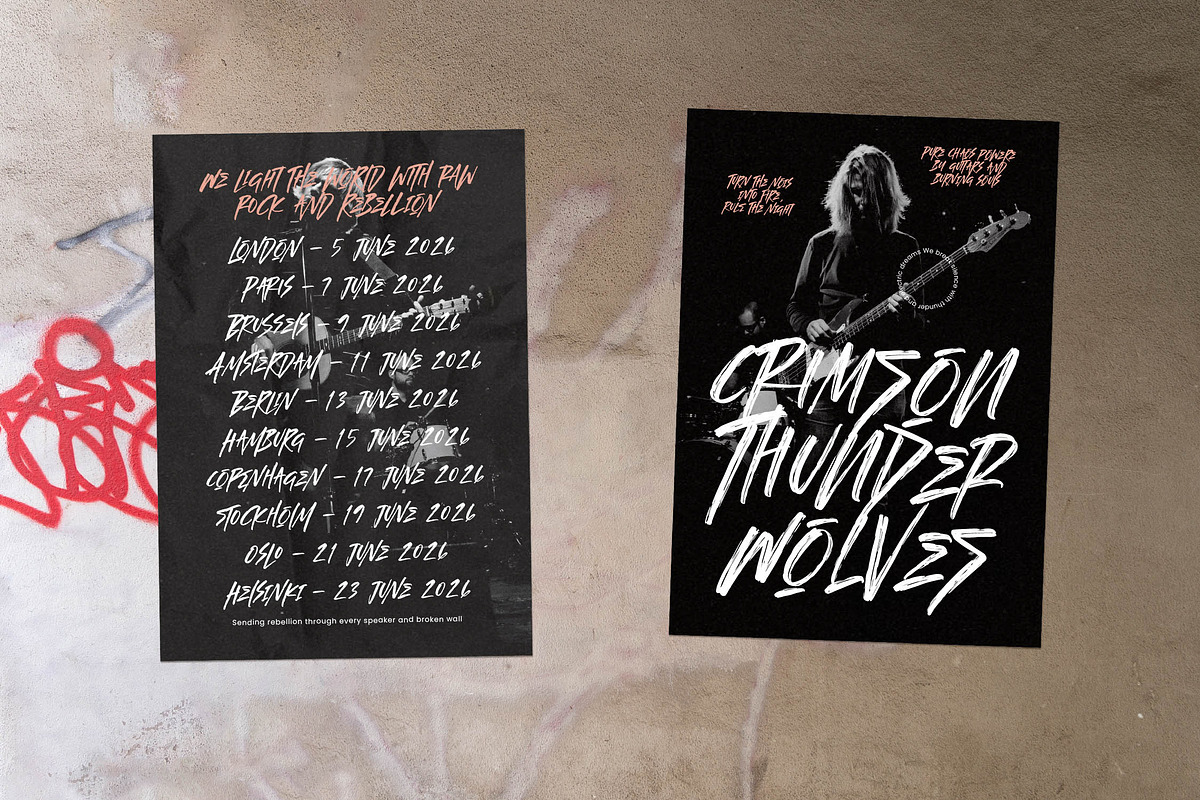 WE LIGHT THE WORLD WITH RAW
ROCK AND REBELLION
LONDON – 5 JUNE 2026
PARIS – 7 JUNE 2026
BRUSSELS – 9 JUNE 2026
AMSTERDAM – 11 JUNE 2026
BERLIN – 13 JUNE 2026
HAMBURG – 15 JUNE 2026
COPENHAGEN – 17 JUNE 2026
STOCKHOLM – 19 JUNE 2026
OSLO – 21 JUNE 2026
HELSINKI – 23 JUNE 2026
Sending rebellion through every speaker and broken wall
TURN THE NOIS
INTO FIRE
RULE THE NIGHT
PURE CHAOS POWERE
BY GUITARS AND
BURNING SOULS
dreams We break silence with thunder and
CRIMSON
THUNDER
WOLVES